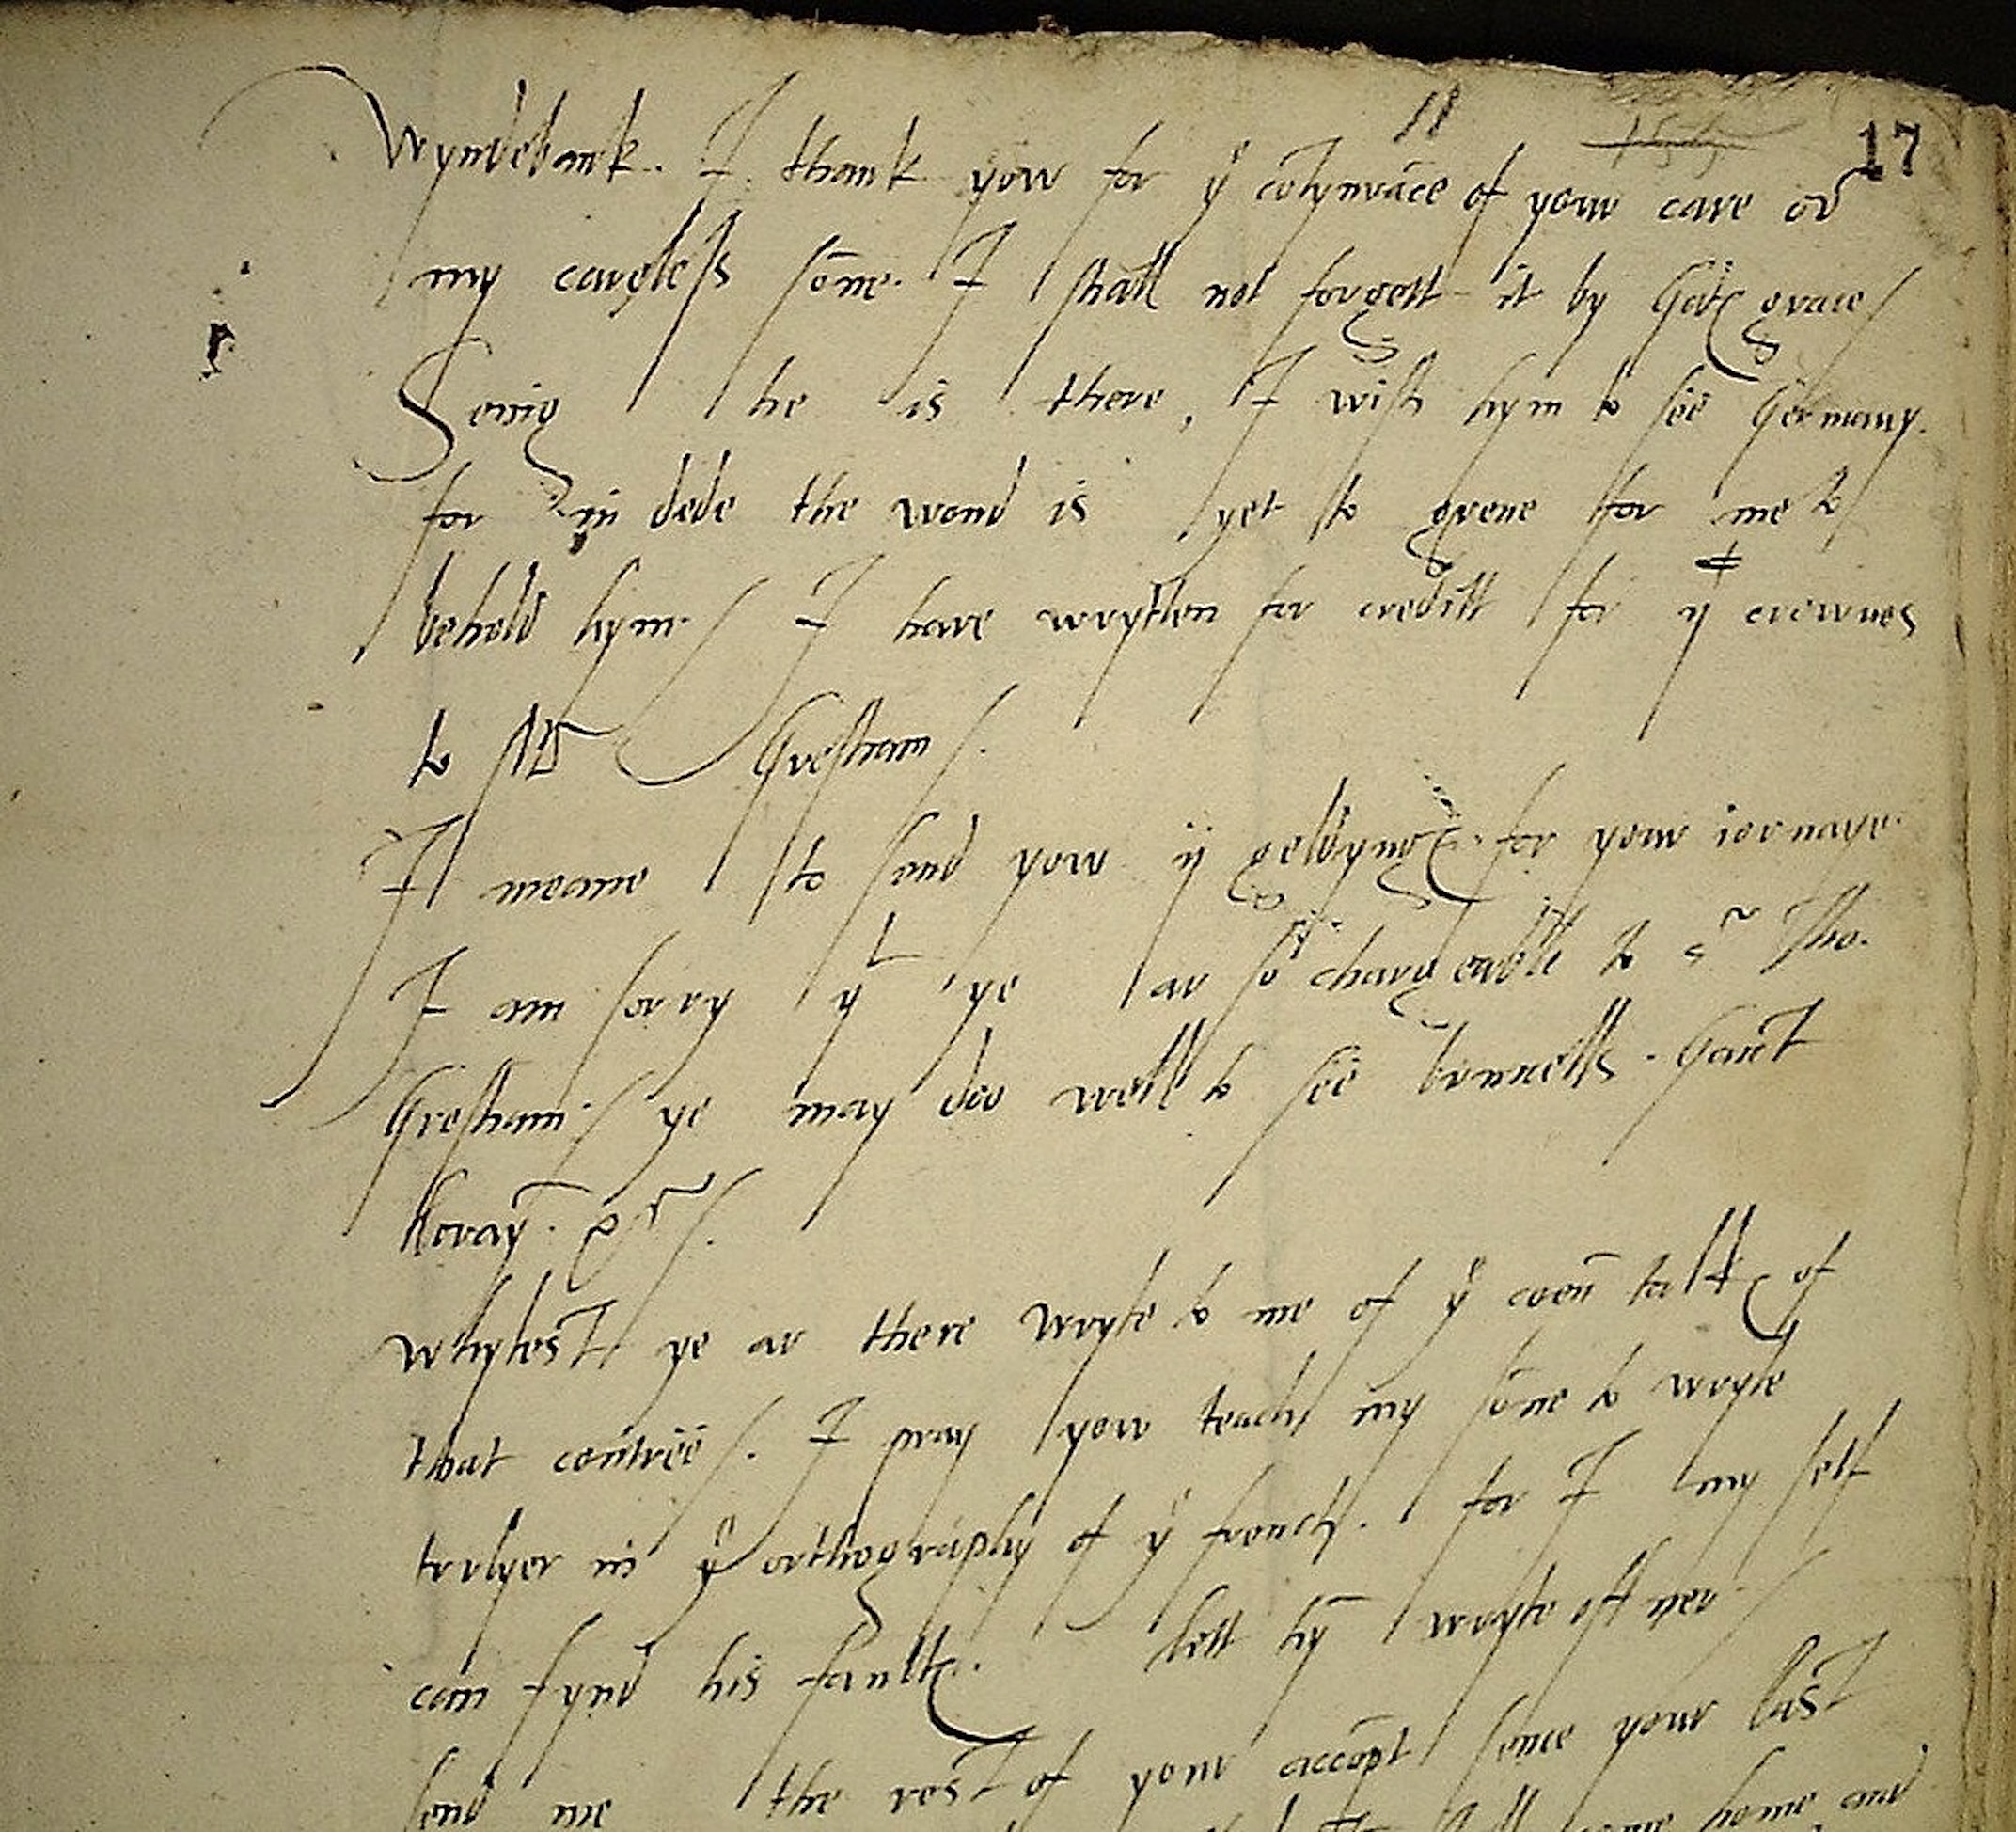 11 17
Wyndebank. I thank yow for yᵉ cōtynvāce of your care ovʳ
my careless sōne. I shall not forgett it by Godꝭ grace/
Seing he is there, I wish hym to see Germany.
for in dede the wond is yet to grene for me to
behold hym./ I have wrytten for creditt for ij crownes
to Mʳ Gresham/.
I meane to send yow ij geldyngꝭ for your iornaye.
I am sorry yᵗ ye ar so chargeable to Sʳ Tho.
Gresham./ ye may doo well to see bruxells. Gaūt
Lovay̅. &c/.
Whylest ye ar there wryte to me of yᵉ coēn talkꝭ of
that coūtree/. I pray yow teach my sōne to wryte
trulyer in yᵉ orthography of yᵉ french. for I my self
can fynd his faultꝭ. lett hȳ wryte oftner/
send me the rest of your accōpt sence your last
home and